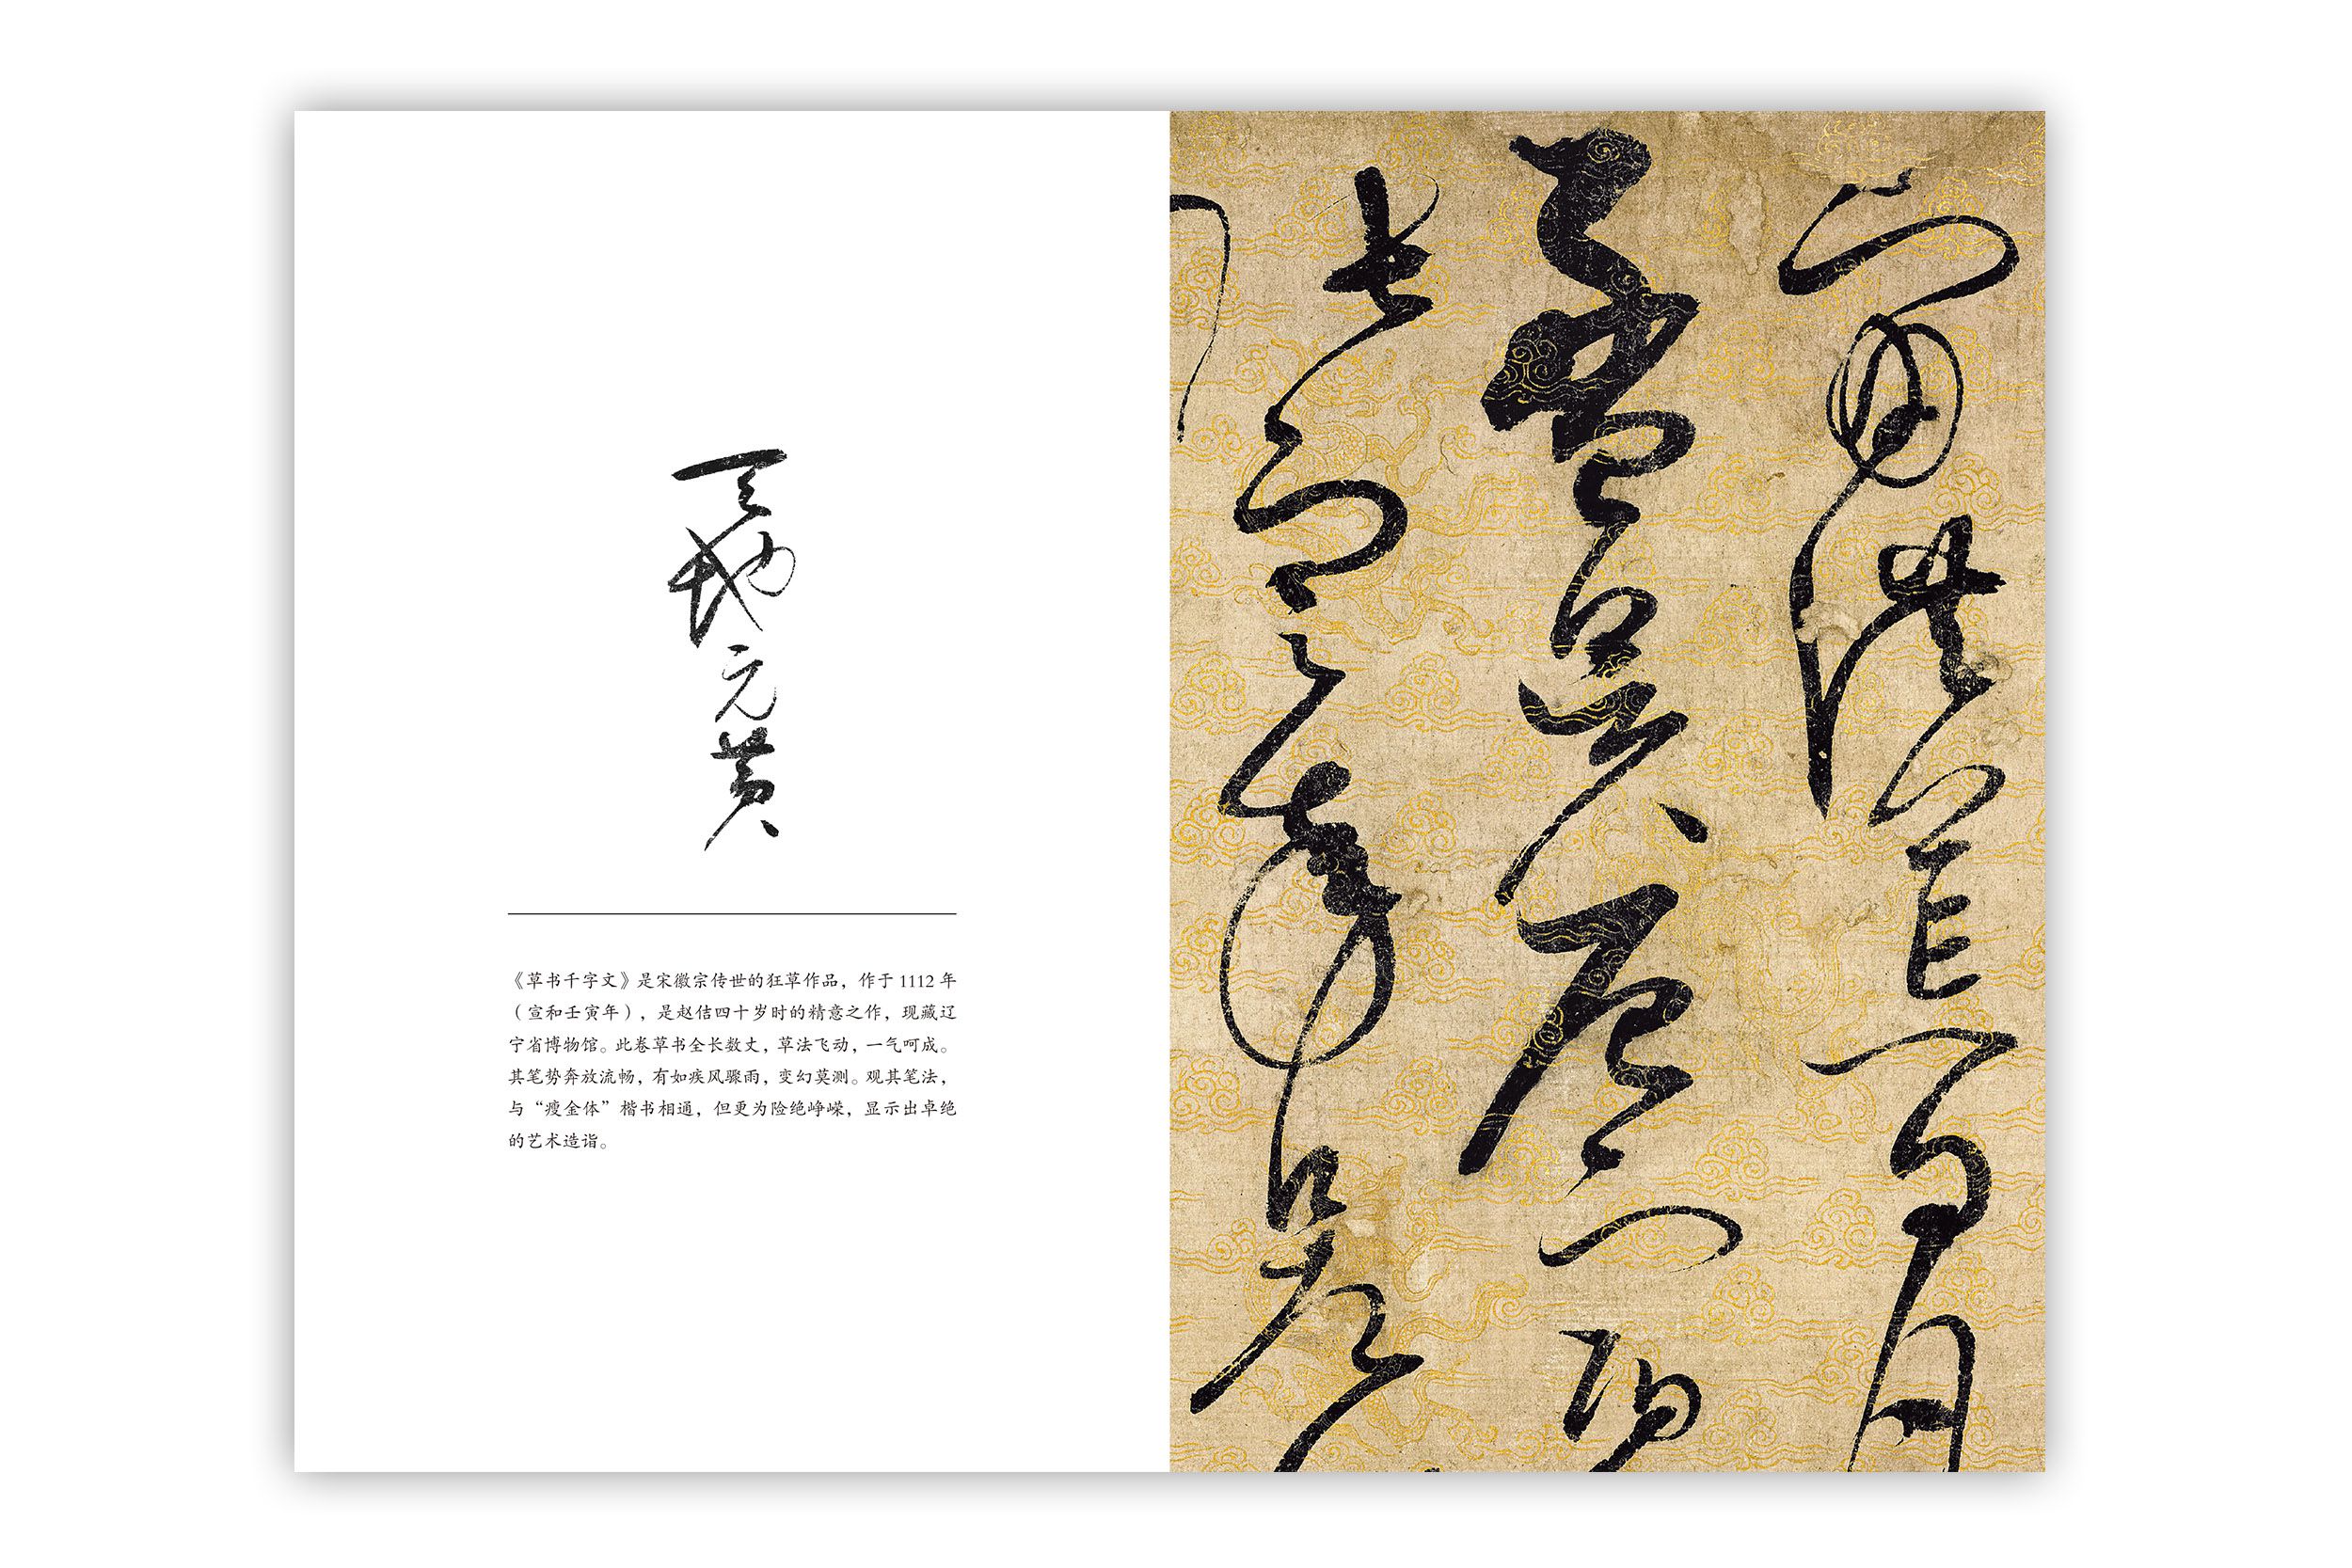 天地元黄
《草书千字文》是宋徽宗传世的狂草作品，作于 1112 年
（宣和壬寅年），是赵佶四十岁时的精意之作，现藏辽
宁省博物馆。此卷草书全长数丈，草法飞动，一气呵成。
其笔势奔放流畅，有如疾风骤雨，变幻莫测。观其笔法，
与“瘦金体”楷书相通，但更为险绝峥嵘，显示出卓绝
的艺术造诣。
宙洪荒日月
盈昃辰宿
張寒来暑